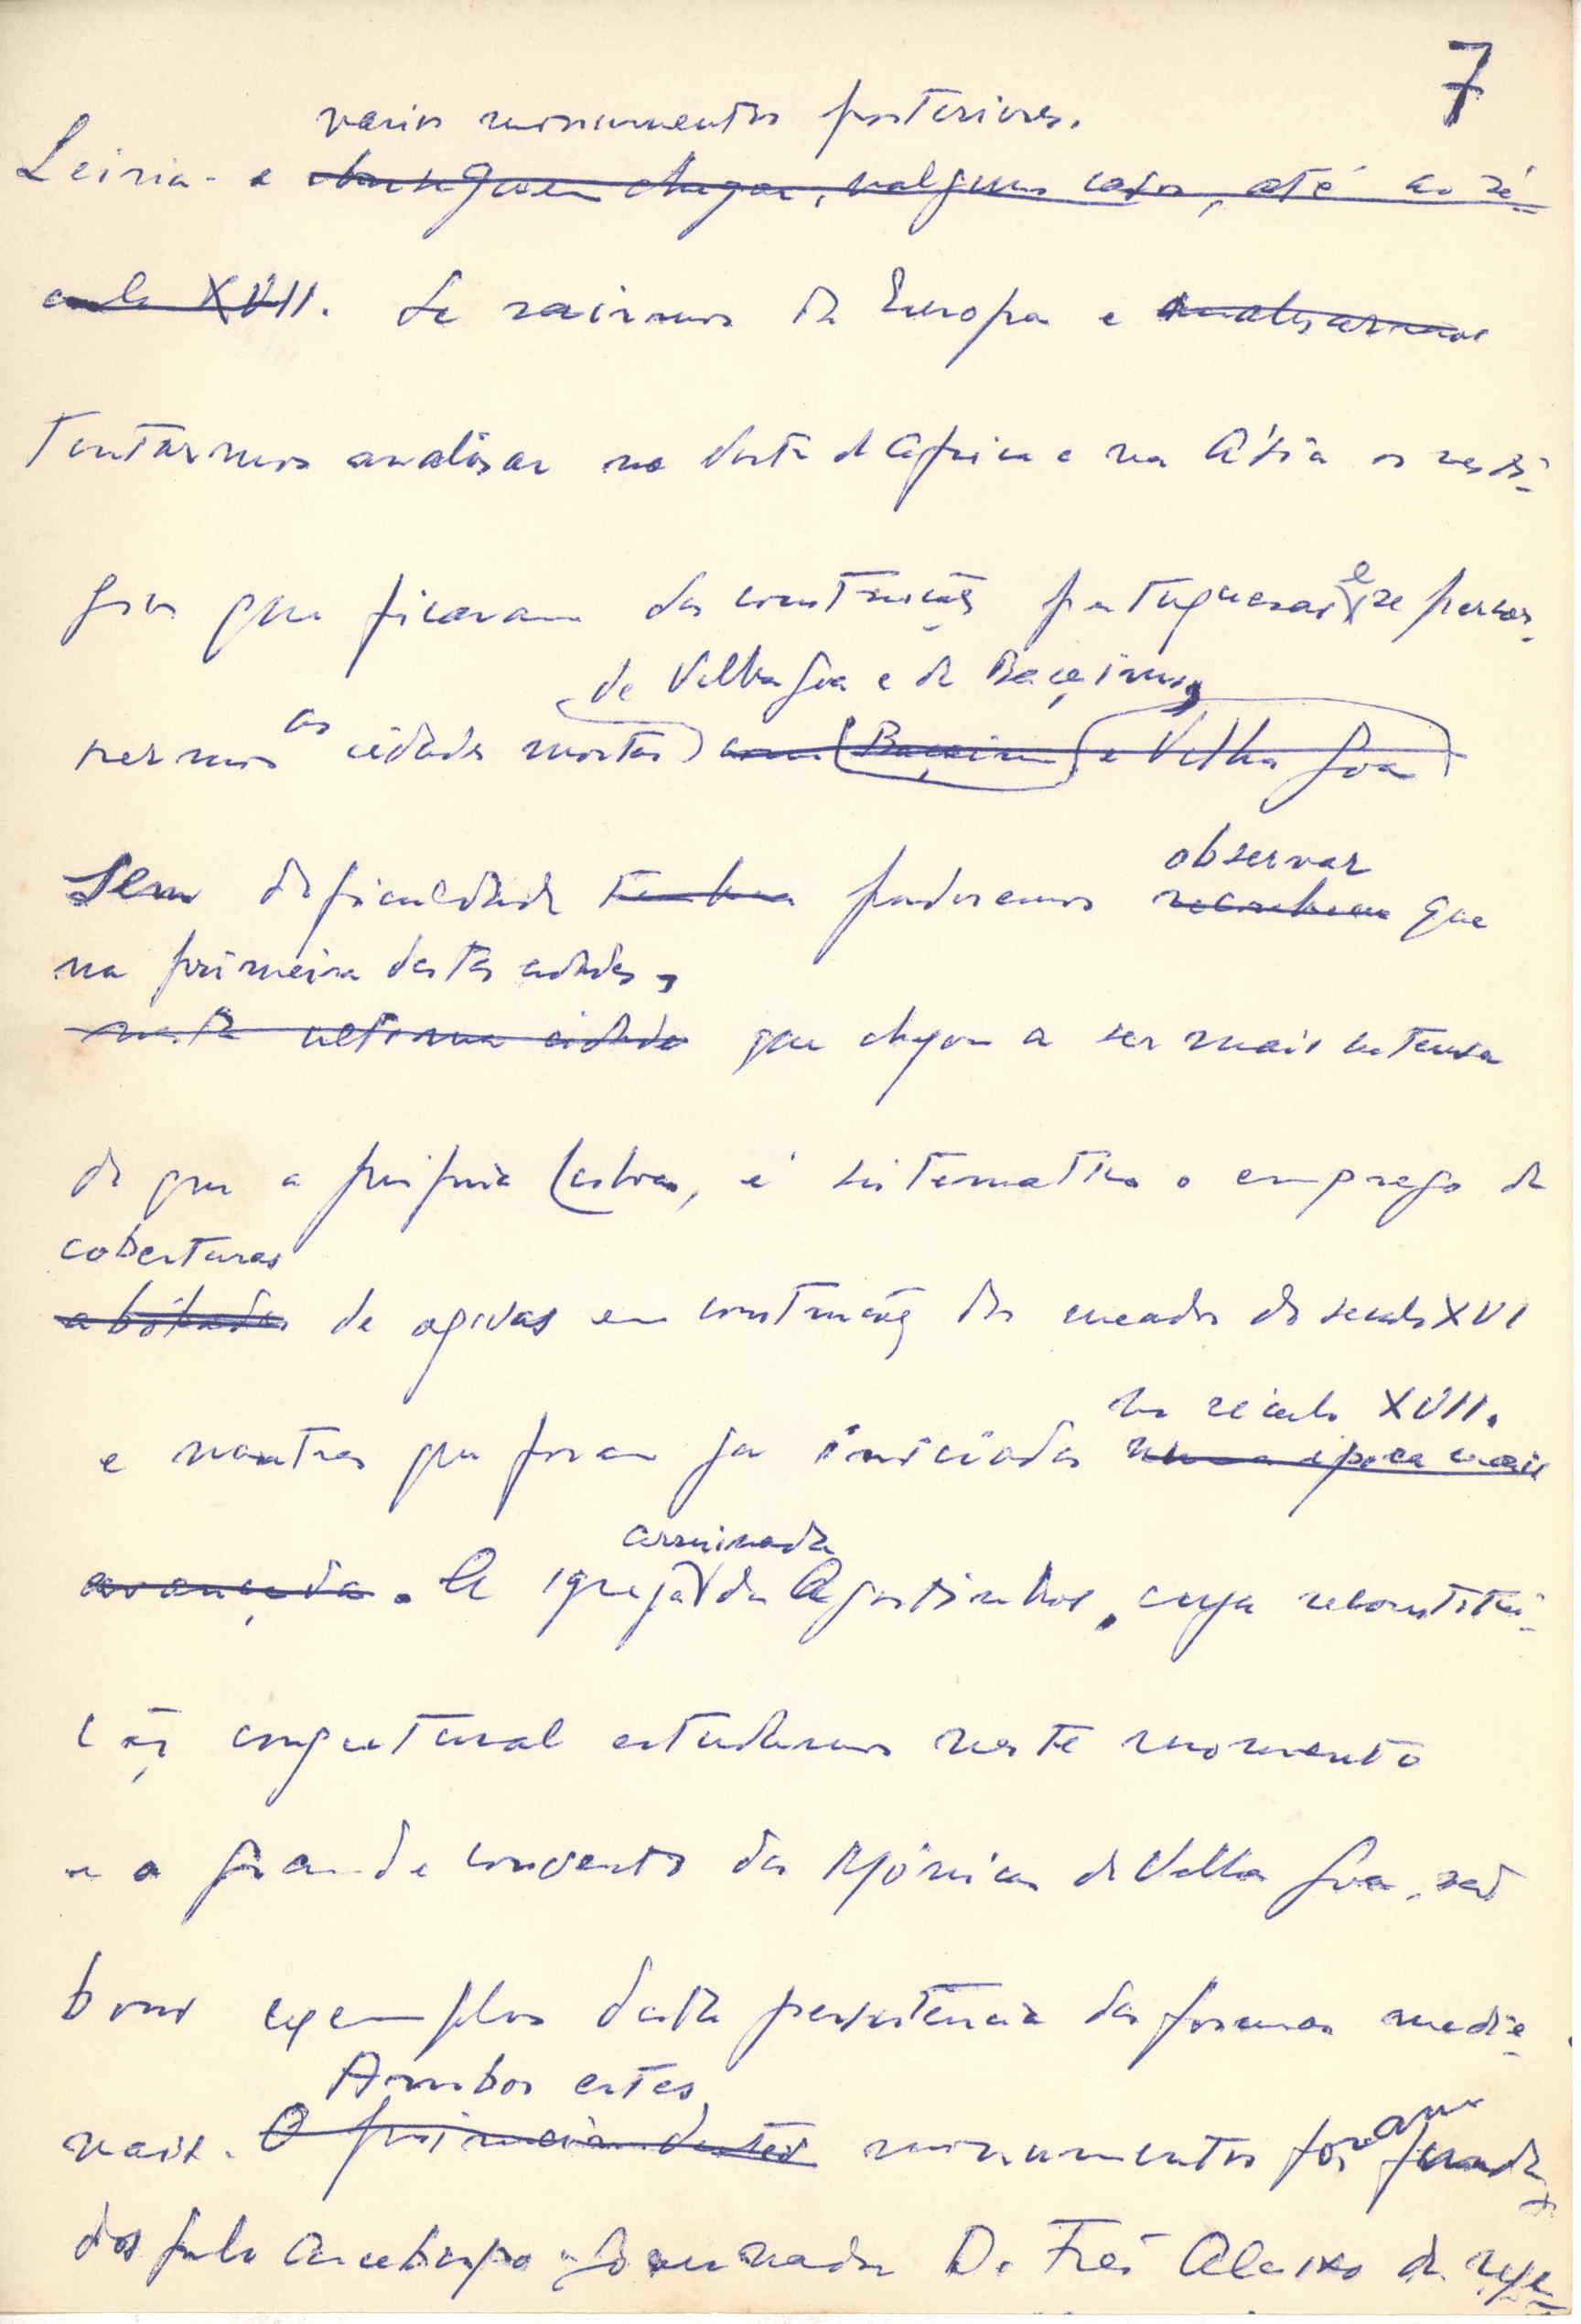 7
varios monumentos posteriores.
Leiria - e chegar, nalguns casos, até ao sé-
culo XVII. Se sairmos da Europa e analisarmos
tentarmos analisar na Costa d'Africa e na Ásia os vestí-
gios que ficaram das construções portuguesas e se percor-
de Velha Goa e de Baçaim,
rermos as cidades mortas com Baçaim e Velha Goa
observar
Sem dificuldade poderemos que
na primeira destas cidades,
nesta ultima cidade que chegou a ser mais extensa
do que a própria Lisboa, é sistematico o emprego de
coberturas
abóbadas de ogivas em construções dos meados do seculo XVI
no século XVII.
e noutras que foram ja iniciadas numa época mais
arruinada
avançada. A igreja dos Agostinhos, cuja reconstitui-
ção conjectural estudamos neste momento
e o grande convento das Mónicas de Velha Goa, são
bons exemplos desta persistencia das formas medie-
Ambos estes
vais. O primeiro destes monumentos foram funda-
dos pelo Arcebispo-Governador D. Frei Aleixo de